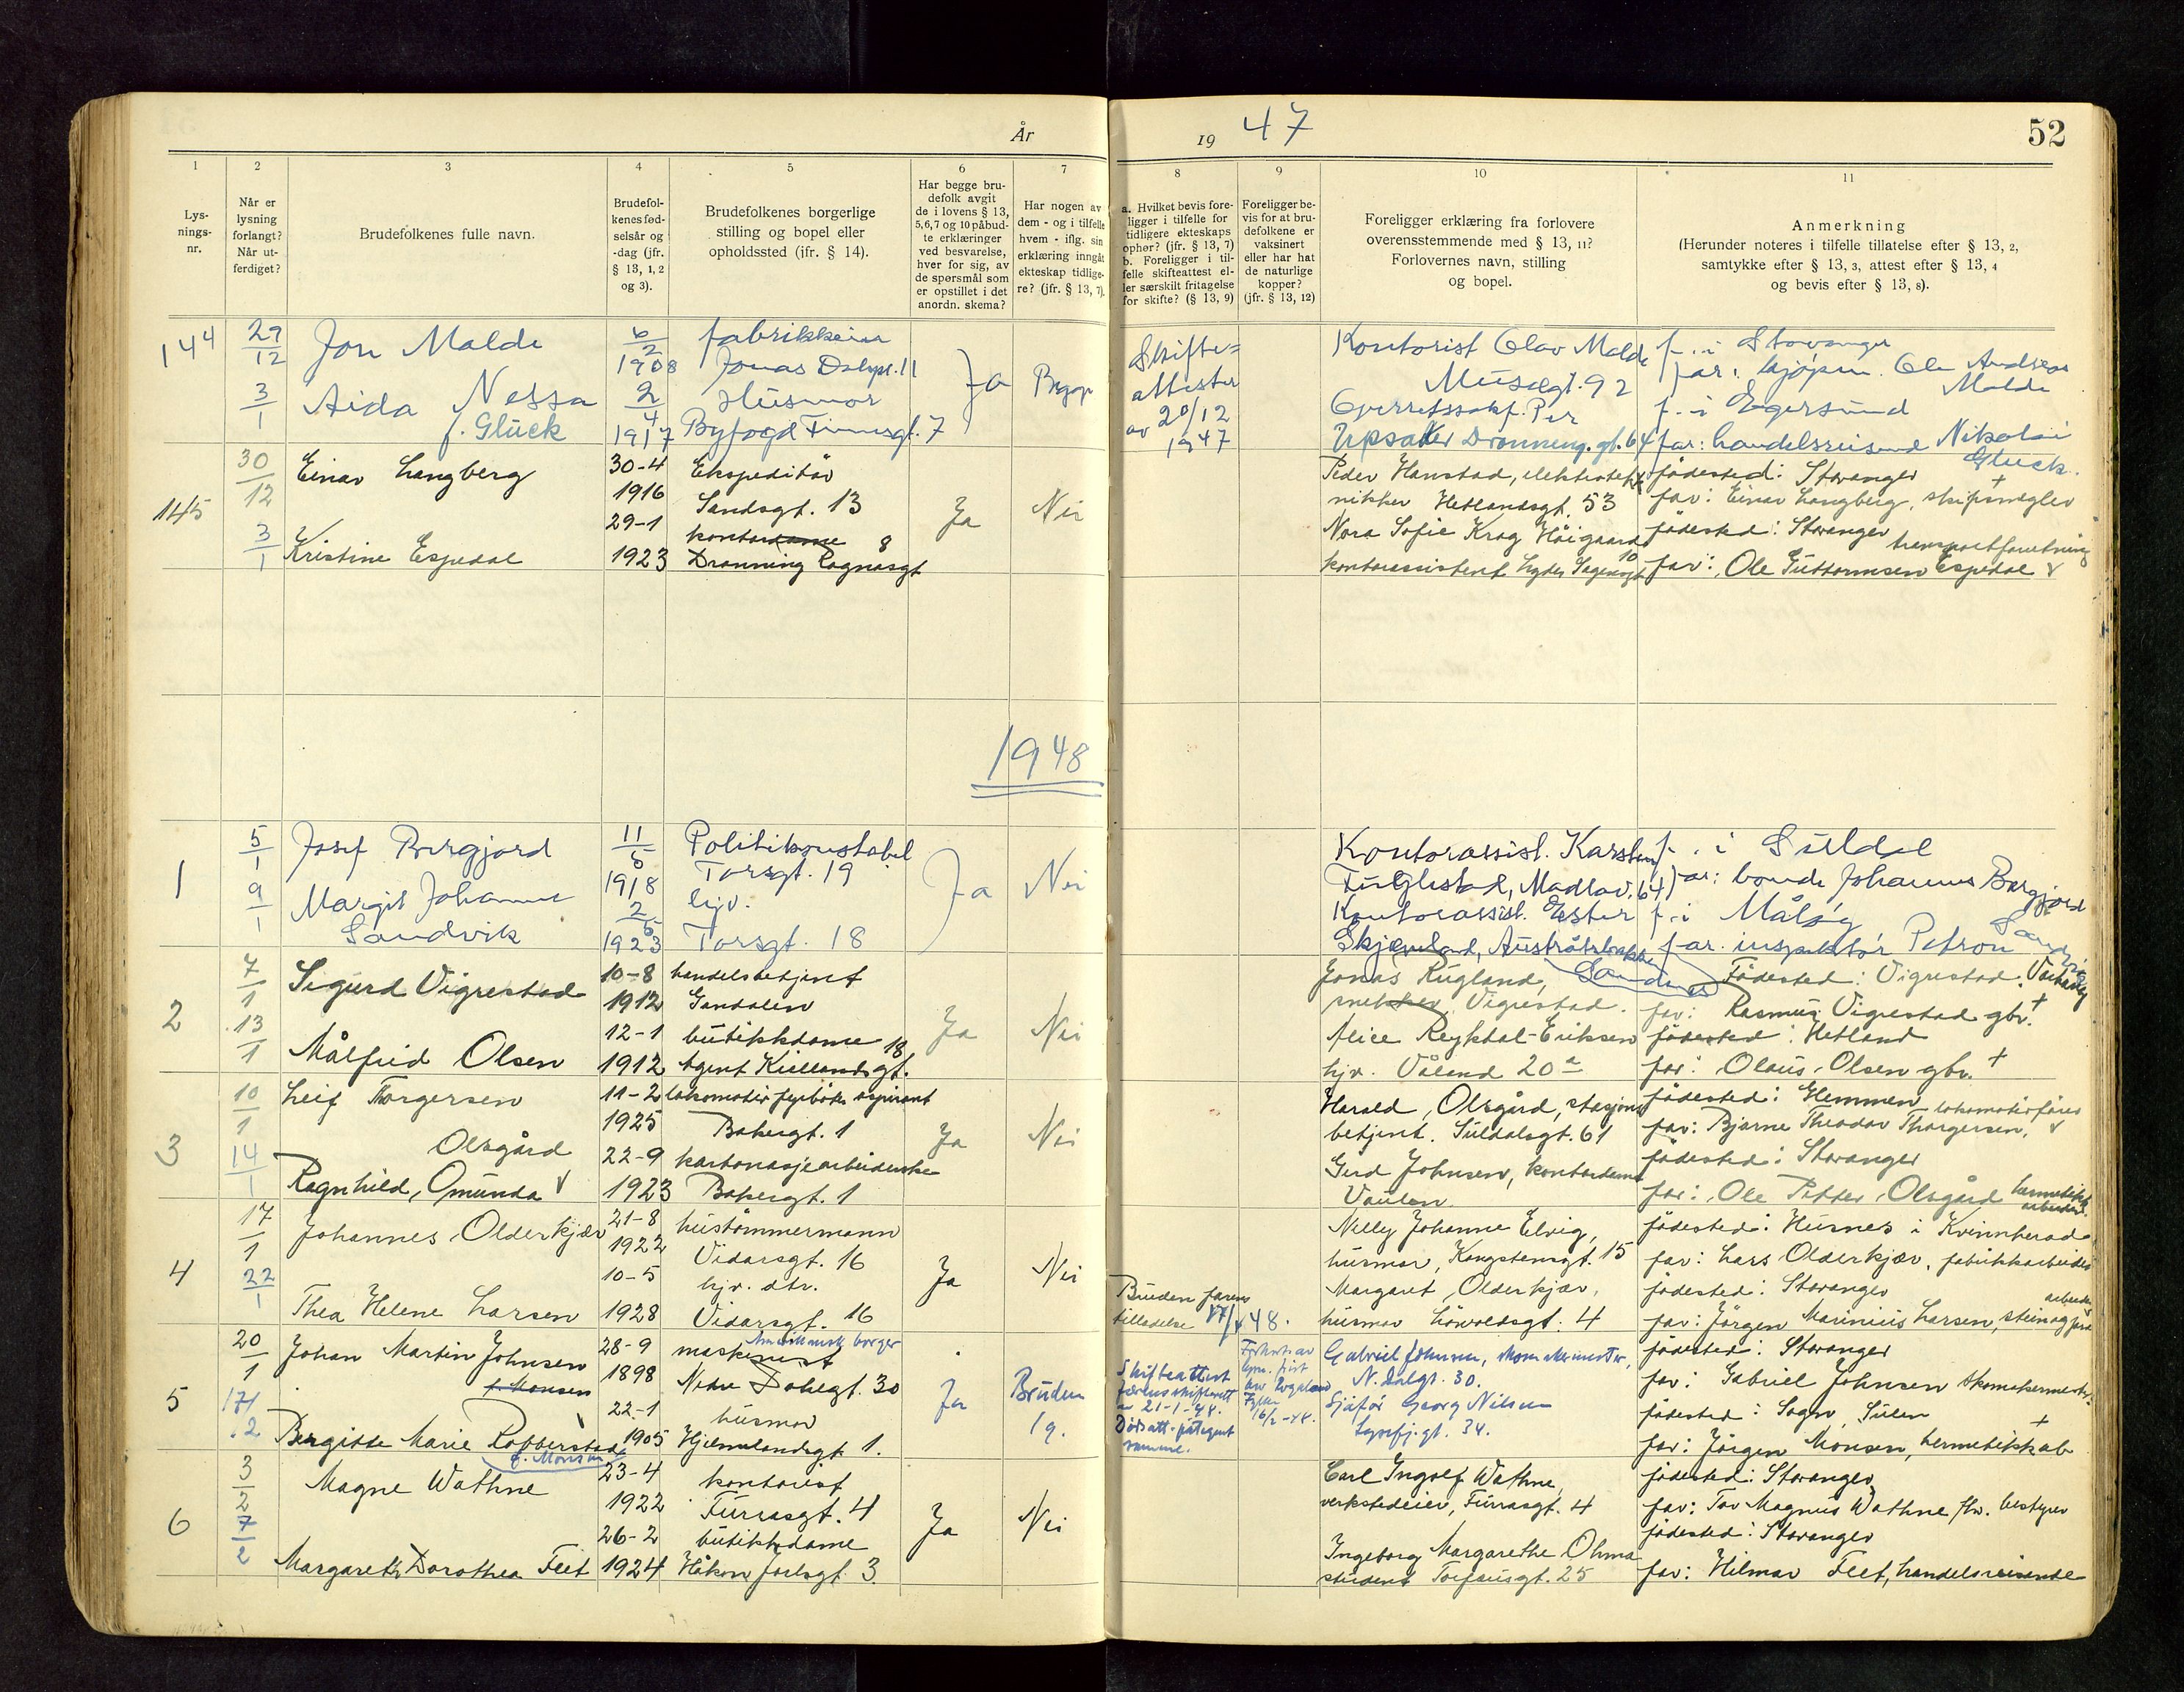 År 19 47
52
1 2 3 4 5 6 7 8 9 10 11
Lys-
nings-
nr.
Når er
lysning
forlangt?
Når ut-
ferdiget?
Brudefolkenes fulle navn.
Brudefol-
kenes fød-
selsår og
-dag (jfr.
§ 13, 1, 2
og 3).
Brudefolkenes borgerlige
stilling og bopel eller
opholdssted (jfr. § 14).
Har begge bru-
defolk avgit
de i lovens § 13,
5,6,7 og 10 påbud-
te erklæringer
ved besvarelse,
hver for sig, av
de spørsmål som
er opstillet i det
anordn. skema?
Har nogen av
dem - og i tilfelle
hvem - iflg. sin
erklæring inngåt
ekteskap tidlige-
re? (jfr. § 13, 7).
a. Hvilket bevis fore-
ligger i tilfelle for
tidligere ekteskaps
ophør? (jfr. § 13, 7)
b. Foreligger i til-
felle skifteattest el-
ler særskilt fritagelse
for skifte? (§ 13, 9)
Foreligger be-
vis for at bru-
defolkene er
vaksinert
eller har hat
de naturlige
kopper?
(jfr. § 13, 12)
Foreligger erklæring fra forlovere
overensstemmende med § 13, 11?
Forlovernes navn, stilling
og bopel.
Anmerkning
(Herunder noteres i tilfelle tillatelse efter § 13, 2,
samtykke efter § 13, 3, attest efter § 13, 4
og bevis efter § 13, 8).
144
29/12
3/1
Jon Malde
Aida Nessa
f. Glück
6/2
1908
2/4
1917
fabrikkeier
Jonas Dalspl. 11
Husmor
Byfogd Finnesgt. 7
Ja
Begge
Skifte=
attester
av 20/12
1947
Kontorist Olav Malde
Muségt. 92
Overrettssakf. Per
Upsaker Dronning. gt. 64
f. i Stavanger
far: kjøpm. Ole Andreas
Malde
f. i Egersund
far: handelsreisend Nikolai
Glück.
145
30/12
3/1
Einar Langberg
Kristine Espedal
30-4
1916
29-1
1923
Ekspeditør
Sandsgt. 13
kontordame 8
Dronning Ragnasgt
Ja
Nei
Peder Hanstad, elektrotek
nikker Hetlandsgt. 53
Nora Sofie Krag Höigaard
kontorassistent Lyder Sagensgt 10
födested: Stavanger
far: Einar Langberg, skipsmegler †
födested: Stavanger
transportforretning
far: Ole Guttormsen Espedal
1948
1
5/1
9/1
Josef Bergjord
Margit Johanne
Sandvik
11/5
1918
2/5
1923
Politikonstabel
Torsgt. 19
hjv.
Torsgt. 18
Ja
Nei
Kontorassist. Karsten
Fuglestad, Madlav. 64
Kontorassist. Ester
Skjæveland, Austråttbakken
Sandnes
f. i Suldal
far: bonde Johannes Bergjord
f. i Måløy
far. inspektør Petron Sandvik
2
7/1
13/1
Sigurd Vigrestad
Målfrid Olsen
10-8
1912
12-1
1912
handelsbetjent
Gandalen
butikkdame 18
Agent Kiellandsgt.
Ja
Nei
Jonas Rugland,
snekker Vigrestad.
Alice Reykdal-Eriksen
hjv. Våland 20a
Födested: Vigrestad. Varhaug
far: Rasmus Vigrestad gbr. †
födested: Hetland
far: Olaus Olsen gbr. †
3
10/1
14/1
Leif Thorgersen
Olsgård
Ragnhild, Omunda
11-2
1925
22-9
1923
lokomotivfyrböter aspirant
Bakergt. 1
kartonasjearbeiderske
Bakergt. 1
Ja
Nei
Harald Olsgård, stasjons
betjent. Suldalsgt. 61
Gerd Johnsen, kontordame
Vaulen
födested: Hemmen
lokomotivförer
far: Bjarne Theodor Thorgersen,
födested: Stavanger
far: Ole Petter Olsgård hermetikk
arbeider
4
17/1
22/1
Johannes Olderkjær
Thea Helene Larsen
21-8
1922
10-5
1928
hustömmermann
Vidarsgt. 16
hjv. dtr.
Vidarsgt. 16
Ja
Nei
Bruden farens
tilladelse 48.
Nelly Johanne Elvig,
husmor, Kongstensgt. 15
Margaret Olderkjær,
husmor 4
födested: Husnes i Kvinnherad
far: Lars Olderkjær, fabrikkarbeider
födested: Stavanger
arbeider
far: Jörgen Marinius Larsen, stein og
5
20/1
17/2
Johan Martin Johnsen
f. Monsen
Bergitte Marie Robberstad
f. Monsen
28-9
1898
22-1
1905
Amerikansk borger
maskinist
Nedre Dalegt. 30
husmor
Hjelmelandsgt 1.
Ja
Bruden
1g.
Skifteattest
21-1-48.
samme.
av Rogaland
Fylke
16/2-48.
Gabriel Johnsen, skomakermester,
N. Dalgt. 30.
Sjåfør Georg Nilsen
Lysefj. gt. 34.
födested: Stavanger
far: Gabriel Johnsen skomakermester
födested: Sogn, Sulen
far: Jörgen Monsen, hermetikkarb †
6
3/2
7/2
Magne Wathne
Margareth Dorothea Feet
23-4
1922
26-2
1924
kontorist
Furrasgt. 4
butikkdame
Håkon Jarlsgt. 3.
Ja
Nei
Carl Ingolf Wathne,
verkstedeier, Furrasgt. 4
Ingeborg Margarethe Ohma
student Torfæusgt. 25
födested: Stavanger
far: Tor Magnus Wathne fhv. bestyrer
födested: Stavanger
far: Hilmar Feet, handelsreisende